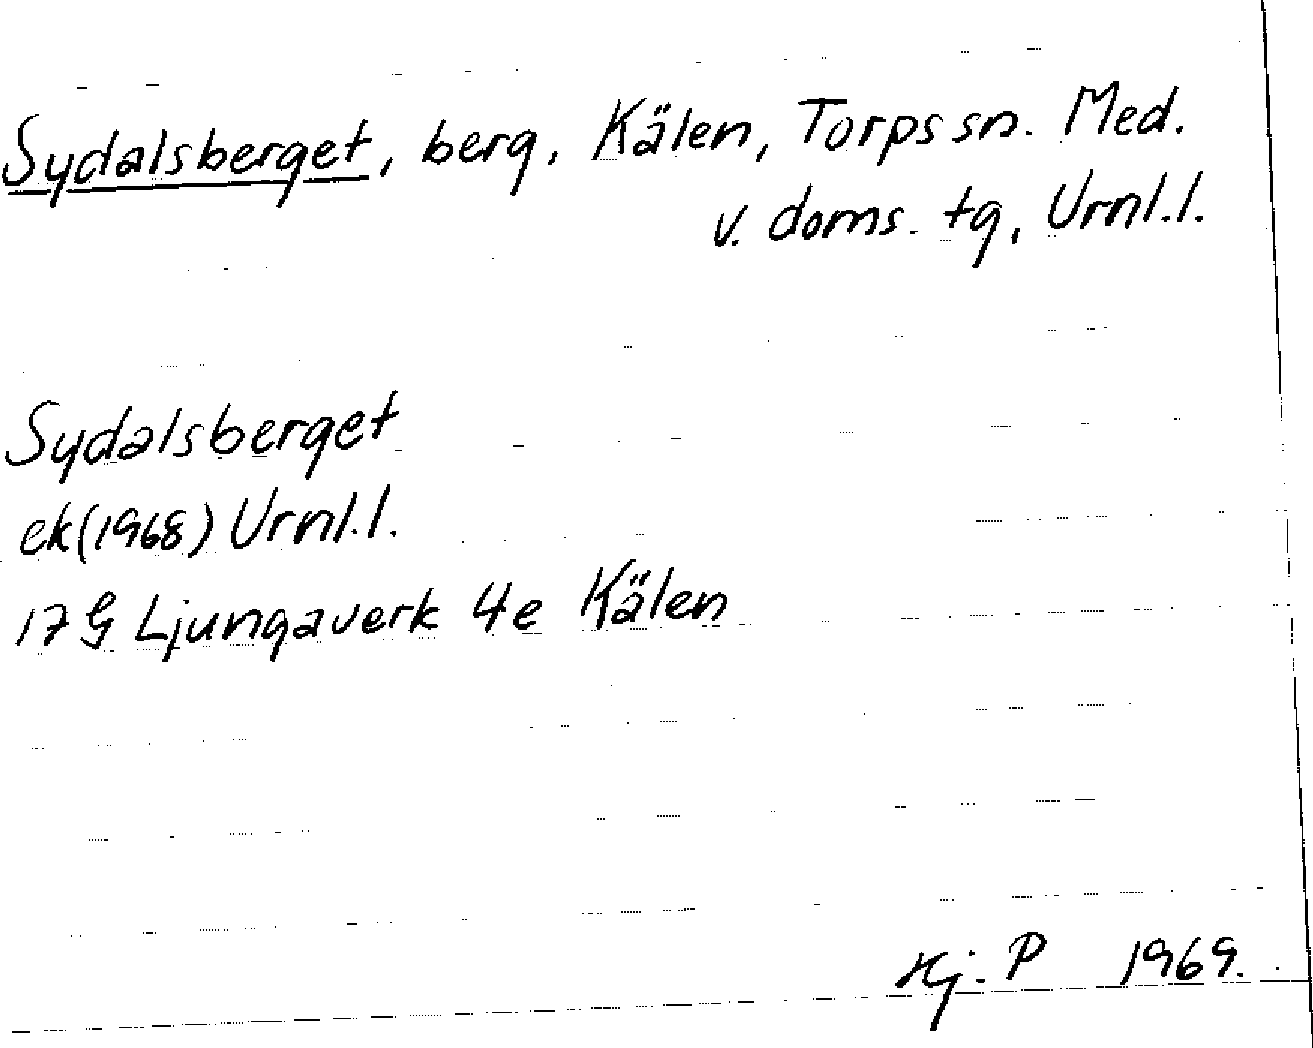 Sydalsberget, berg, Kälen, Torps sn. Med.
v. doms. tg, Urnl.l.
Sydalsberget
ek(1968) Urnl.l.
17G Ljungaverk 4e Kälen
Hj. P 1969.